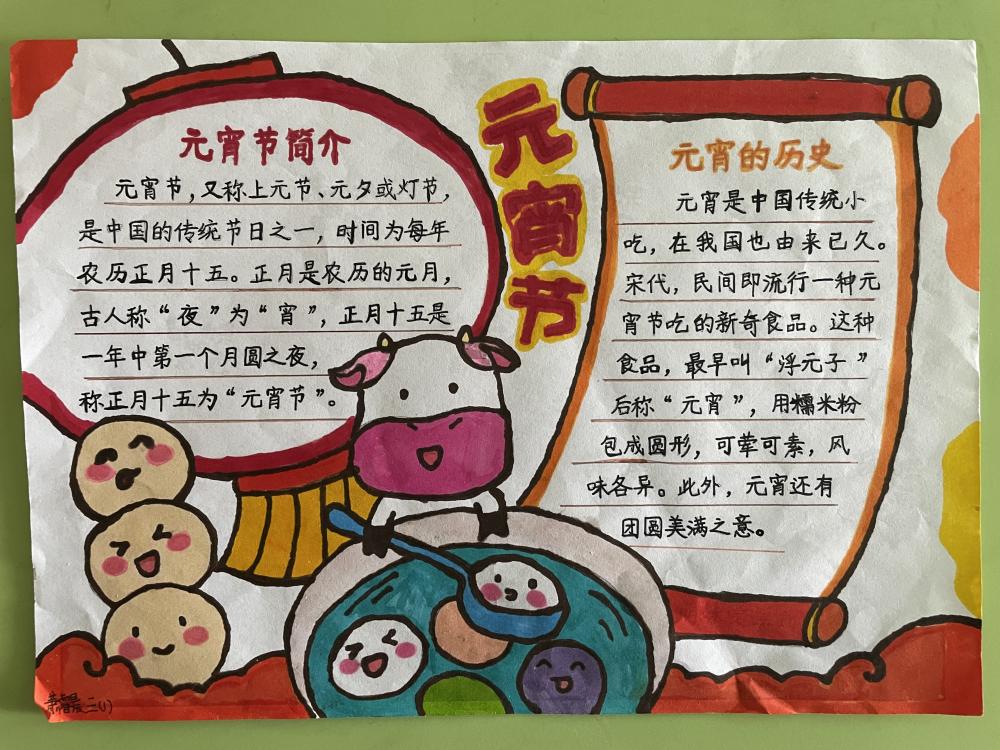 元宵节
元宵节简介
元宵节，又称上元节、元夕或灯节，
是中国的传统节日之一，时间为每年
农历正月十五。正月是农历的元月，
古人称“夜”为“宵”，正月十五是
一年中第一个月圆之夜，
称正月十五为“元宵节”。
元宵的历史
元宵是中国传统小
吃，在我国也由来已久。
宋代，民间即流行一种元
宵节吃的新奇食品。这种
食品，最早叫“浮元子”
后称“元宵”，用糯米粉
包成圆形，可荤可素，风
味各异。此外，元宵还有
团圆美满之意。
二(1)